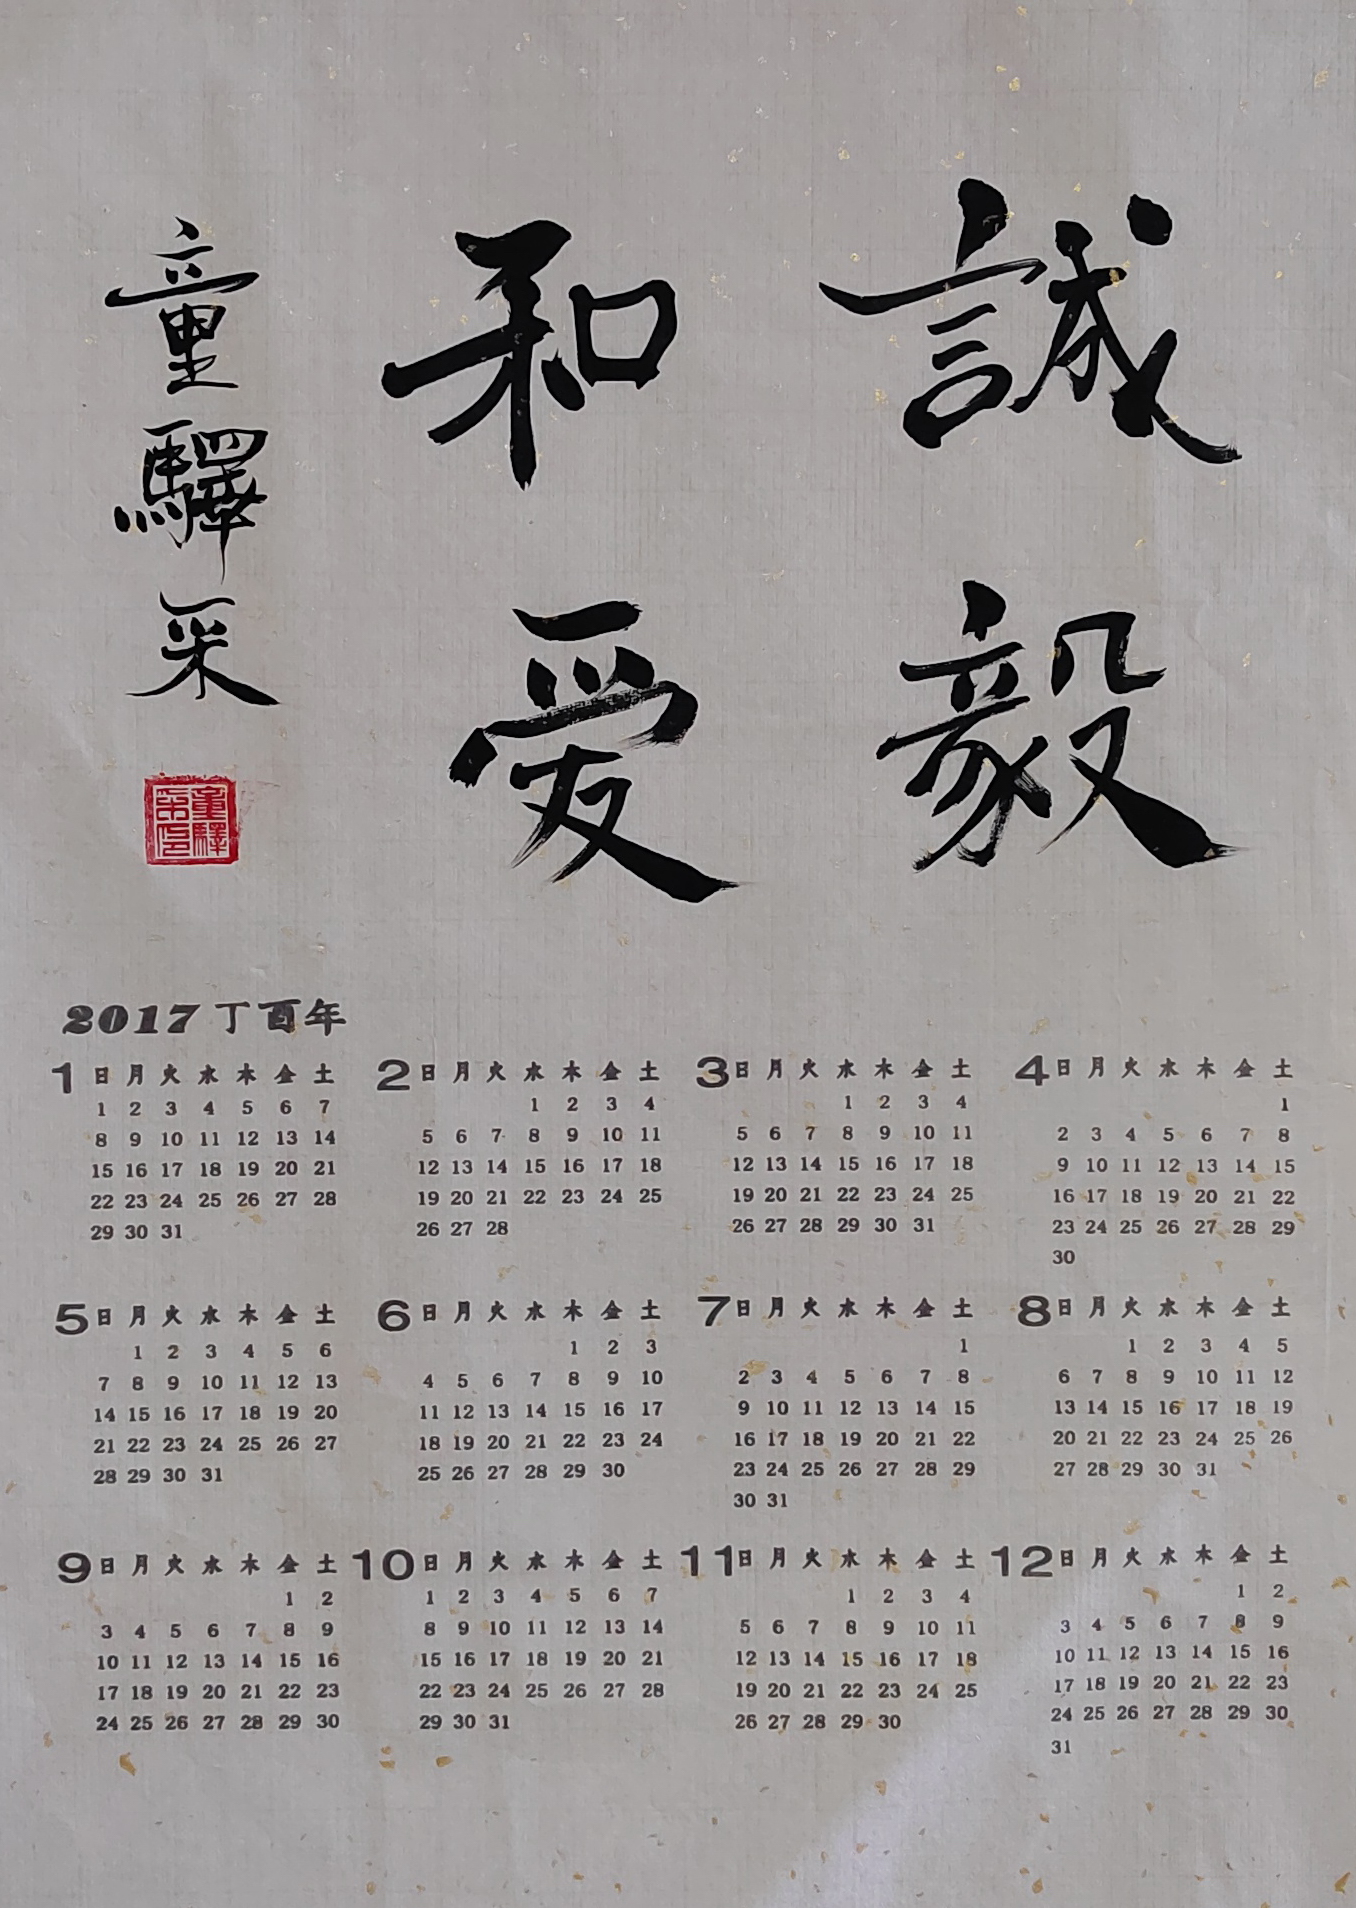 誠毅
和爱
童驛采
童驛
采印
2017 丁酉年
1 日 月 火 水 木 金 土
1 2 3 4 5 6 7
8 9 10 11 12 13 14
15 16 17 18 19 20 21
22 23 24 25 26 27 28
29 30 31
2 日 月 火 水 木 金 土
1 2 3 4
5 6 7 8 9 10 11
12 13 14 15 16 17 18
19 20 21 22 23 24 25
26 27 28
3 日 月 火 水 木 金 土
1 2 3 4
5 6 7 8 9 10 11
12 13 14 15 16 17 18
19 20 21 22 23 24 25
26 27 28 29 30 31
4 日 月 火 水 木 金 土
1
2 3 4 5 6 7 8
9 10 11 12 13 14 15
16 17 18 19 20 21 22
23 24 25 26 27 28 29
30
5 日 月 火 水 木 金 土
1 2 3 4 5 6
7 8 9 10 11 12 13
14 15 16 17 18 19 20
21 22 23 24 25 26 27
28 29 30 31
6 日 月 火 水 木 金 土
1 2 3
4 5 6 7 8 9 10
11 12 13 14 15 16 17
18 19 20 21 22 23 24
25 26 27 28 29 30
7 日 月 火 水 木 金 土
1
2 3 4 5 6 7 8
9 10 11 12 13 14 15
16 17 18 19 20 21 22
23 24 25 26 27 28 29
30 31
8 日 月 火 水 木 金 土
1 2 3 4 5
6 7 8 9 10 11 12
13 14 15 16 17 18 19
20 21 22 23 24 25 26
27 28 29 30 31
9 日 月 火 水 木 金 土
1 2
3 4 5 6 7 8 9
10 11 12 13 14 15 16
17 18 19 20 21 22 23
24 25 26 27 28 29 30
10 日 月 火 水 木 金 土
1 2 3 4 5 6 7
8 9 10 11 12 13 14
15 16 17 18 19 20 21
22 23 24 25 26 27 28
29 30 31
11 日 月 火 水 木 金 土
1 2 3 4
5 6 7 8 9 10 11
12 13 14 15 16 17 18
19 20 21 22 23 24 25
26 27 28 29 30
12 日 月 火 水 木 金 土
1 2
3 4 5 6 7 8 9
10 11 12 13 14 15 16
17 18 19 20 21 22 23
24 25 26 27 28 29 30
31